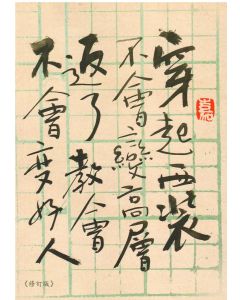 穿起西裝
不會變高層
返了教會
不會變好人
(修訂版)